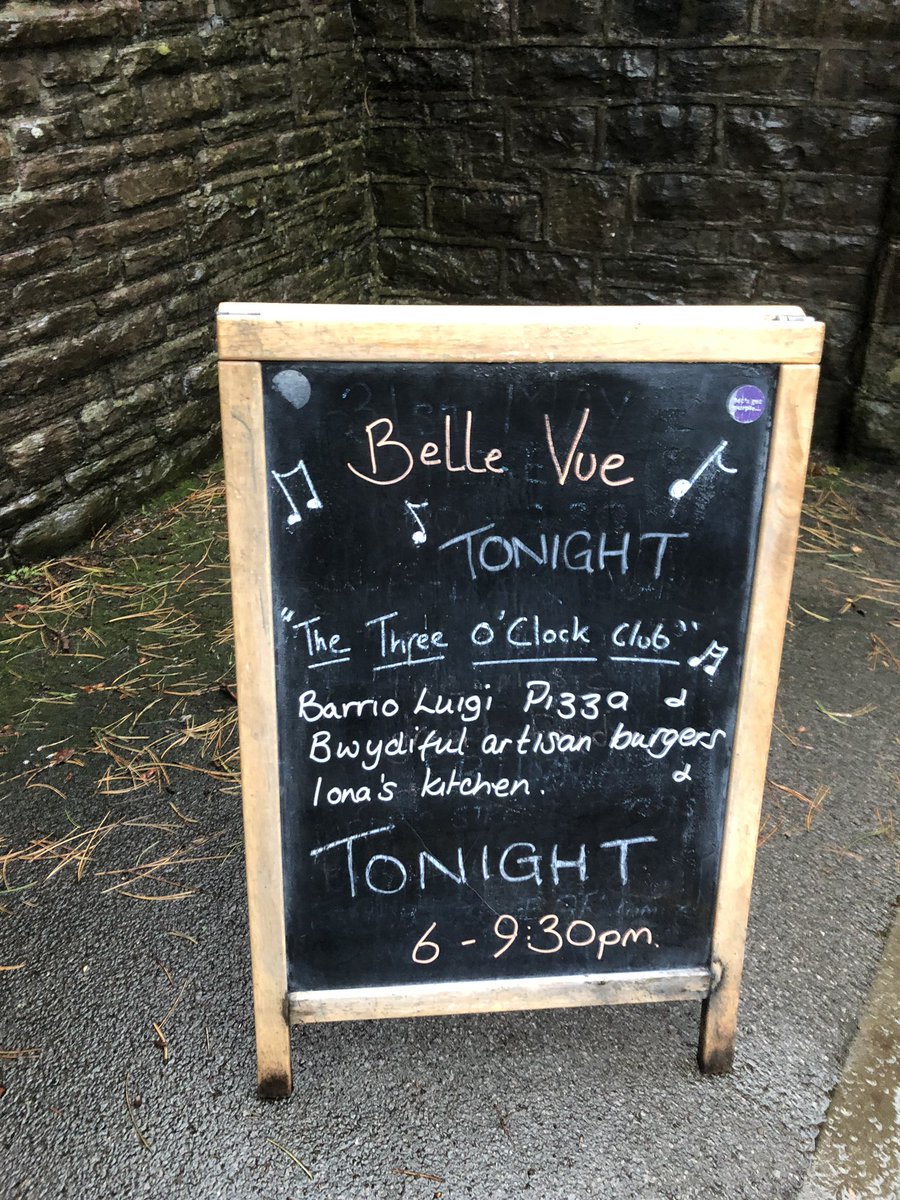 let's get purple...
Belle Vue
TONIGHT
"The Three O'Clock Club"
Barrio Luigi Pizza &
Bwydiful artisan burgers
& 
Iona's kitchen.
TONIGHT
6 - 9:30pm.